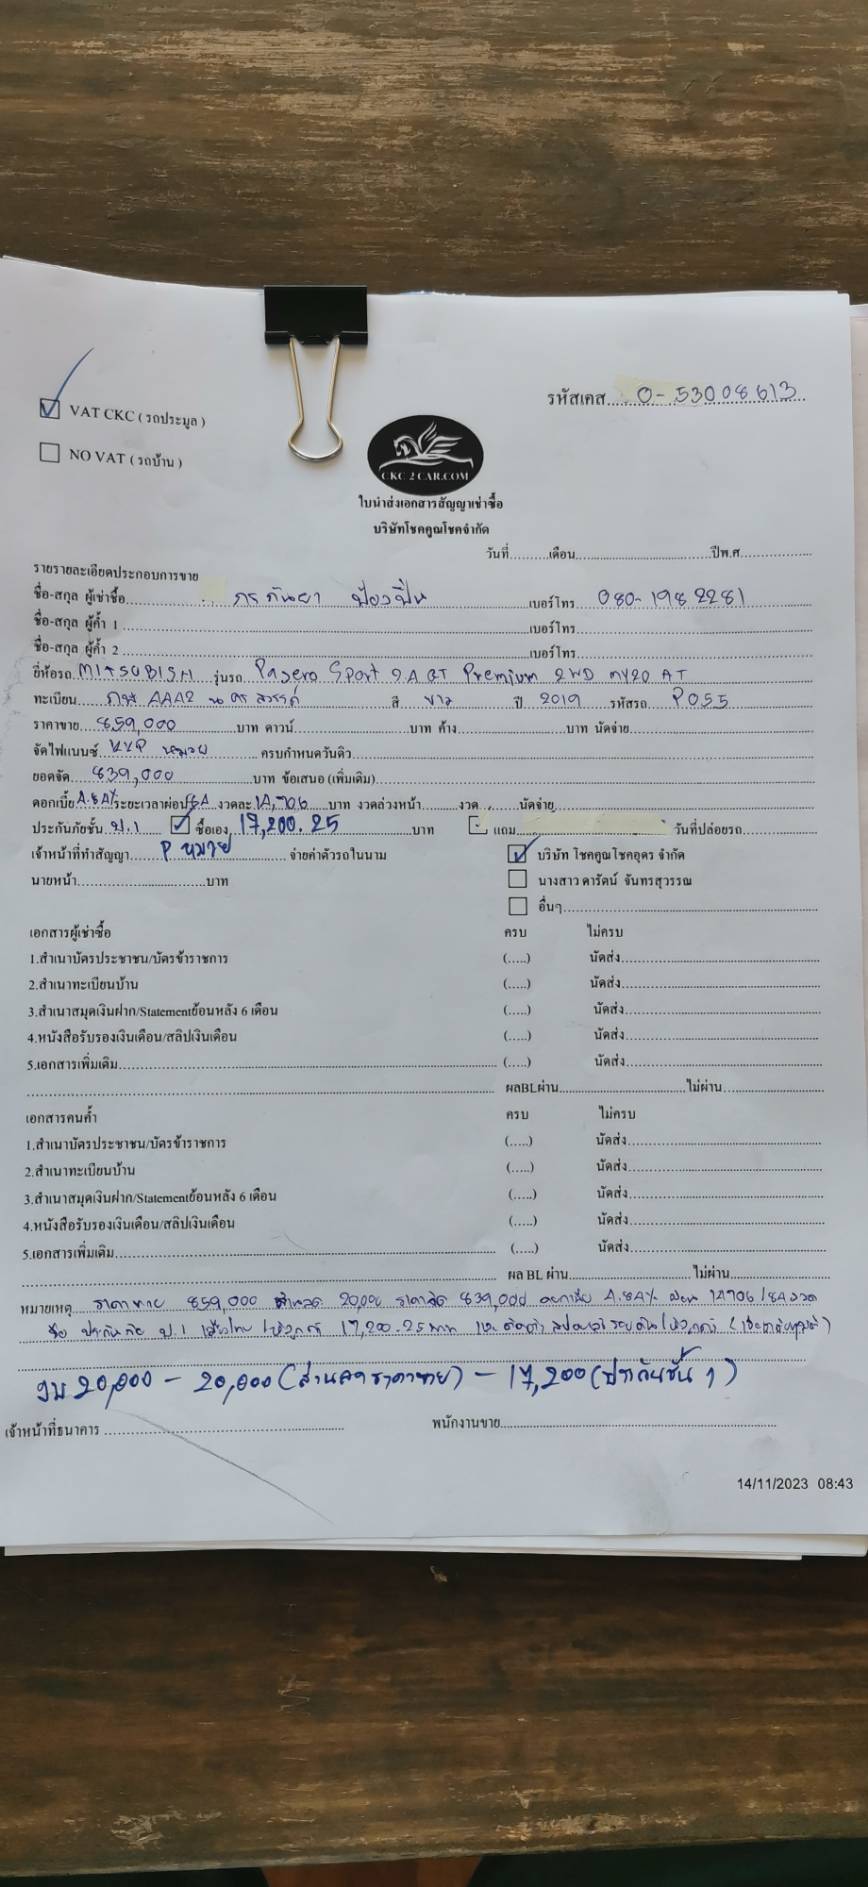 รหัสเคส.....0-53008613
VAT CKC ( รถประมูล )
NO VAT ( รถบ้าน )
CKC 2 CAR.COM
ใบนำส่งเอกสารสัญญาเช่าซื้อ
บริษัทโชคคูณโชคจำกัด
วันที่.........เดือน..............................ปีพ.ศ................
รายรายละเอียดประกอบการขาย
ชื่อ-สกุล ผู้เช่าซื้อ.......... เบอร์โทร 080-198 2281
ชื่อ-สกุล ผู้ค้ำ 1.......... เบอร์โทร..........
ชื่อ-สกุล ผู้ค้ำ 2.......... เบอร์โทร..........
ยี่ห้อรถ MITSUBISHI รุ่นรถ Pajero Sport 2.4 GT Premium 2WD MY20 AT
ทะเบียน 4442 นครสวรรค์ สี ขาว ปี 2019 รหัสรถ P055
ราคาขาย 859,000 บาท ดาวน์..........บาท ค้าง..........บาท นัดจ่าย..........
จัดไฟแนนซ์ KKP หมวย ครบกำหนดวันดิว..........
ยอดจัด 839,000 บาท ข้อเสนอ (เพิ่มเติม)..........
ดอกเบี้ย 4.84% ระยะเวลาผ่อน 84 งวดละ 14,706 บาท งวดล่วงหน้า..........งวด..........นัดจ่าย..........
ประกันภัยชั้น ป.1 ซื้อเอง 17,200.25 บาท แถม.......... วันที่ปล่อยรถ..........
เจ้าหน้าที่ทำสัญญา P หมวย จ่ายค่าตัวรถในนาม บริษัท โชคคูณโชคอุดร จำกัด
นายหน้า..........บาท นางสาว ดารัตน์ จันทรสุวรรณ
อื่นๆ..........
เอกสารผู้เช่าซื้อ ครบ ไม่ครบ
1.สำเนาบัตรประชาชน/บัตรข้าราชการ (.....) นัดส่ง..........
2.สำเนาทะเบียนบ้าน (.....) นัดส่ง..........
3.สำเนาสมุดเงินฝาก/Statementย้อนหลัง 6 เดือน (.....) นัดส่ง..........
4.หนังสือรับรองเงินเดือน/สลิปเงินเดือน (.....) นัดส่ง..........
5.เอกสารเพิ่มเติม.......... (.....) นัดส่ง..........
ผลBLผ่าน..........ไม่ผ่าน..........
เอกสารคนค้ำ ครบ ไม่ครบ
1.สำเนาบัตรประชาชน/บัตรข้าราชการ (.....) นัดส่ง..........
2.สำเนาทะเบียนบ้าน (.....) นัดส่ง..........
3.สำเนาสมุดเงินฝาก/Statementย้อนหลัง 6 เดือน (.....) นัดส่ง..........
4.หนังสือรับรองเงินเดือน/สลิปเงินเดือน (.....) นัดส่ง..........
5.เอกสารเพิ่มเติม.......... (.....) นัดส่ง..........
ผล BL ผ่าน..........ไม่ผ่าน..........
หมายเหตุ ราคาขาย 859,000 ส่วนลด 20,000 ราคาจัด 839,000 ดอกเบี้ย 4.84% ผ่อน 14706 / 84 งวด
ซื้อ ประกันภัย ป.1 17,200.25 บาท
งบ 20,000 - 20,000 (ส่วนลดราคาขาย) - 17,200 (ประกันชั้น 1)
เจ้าหน้าที่ธนาคาร.......... พนักงานขาย..........
14/11/2023 08:43